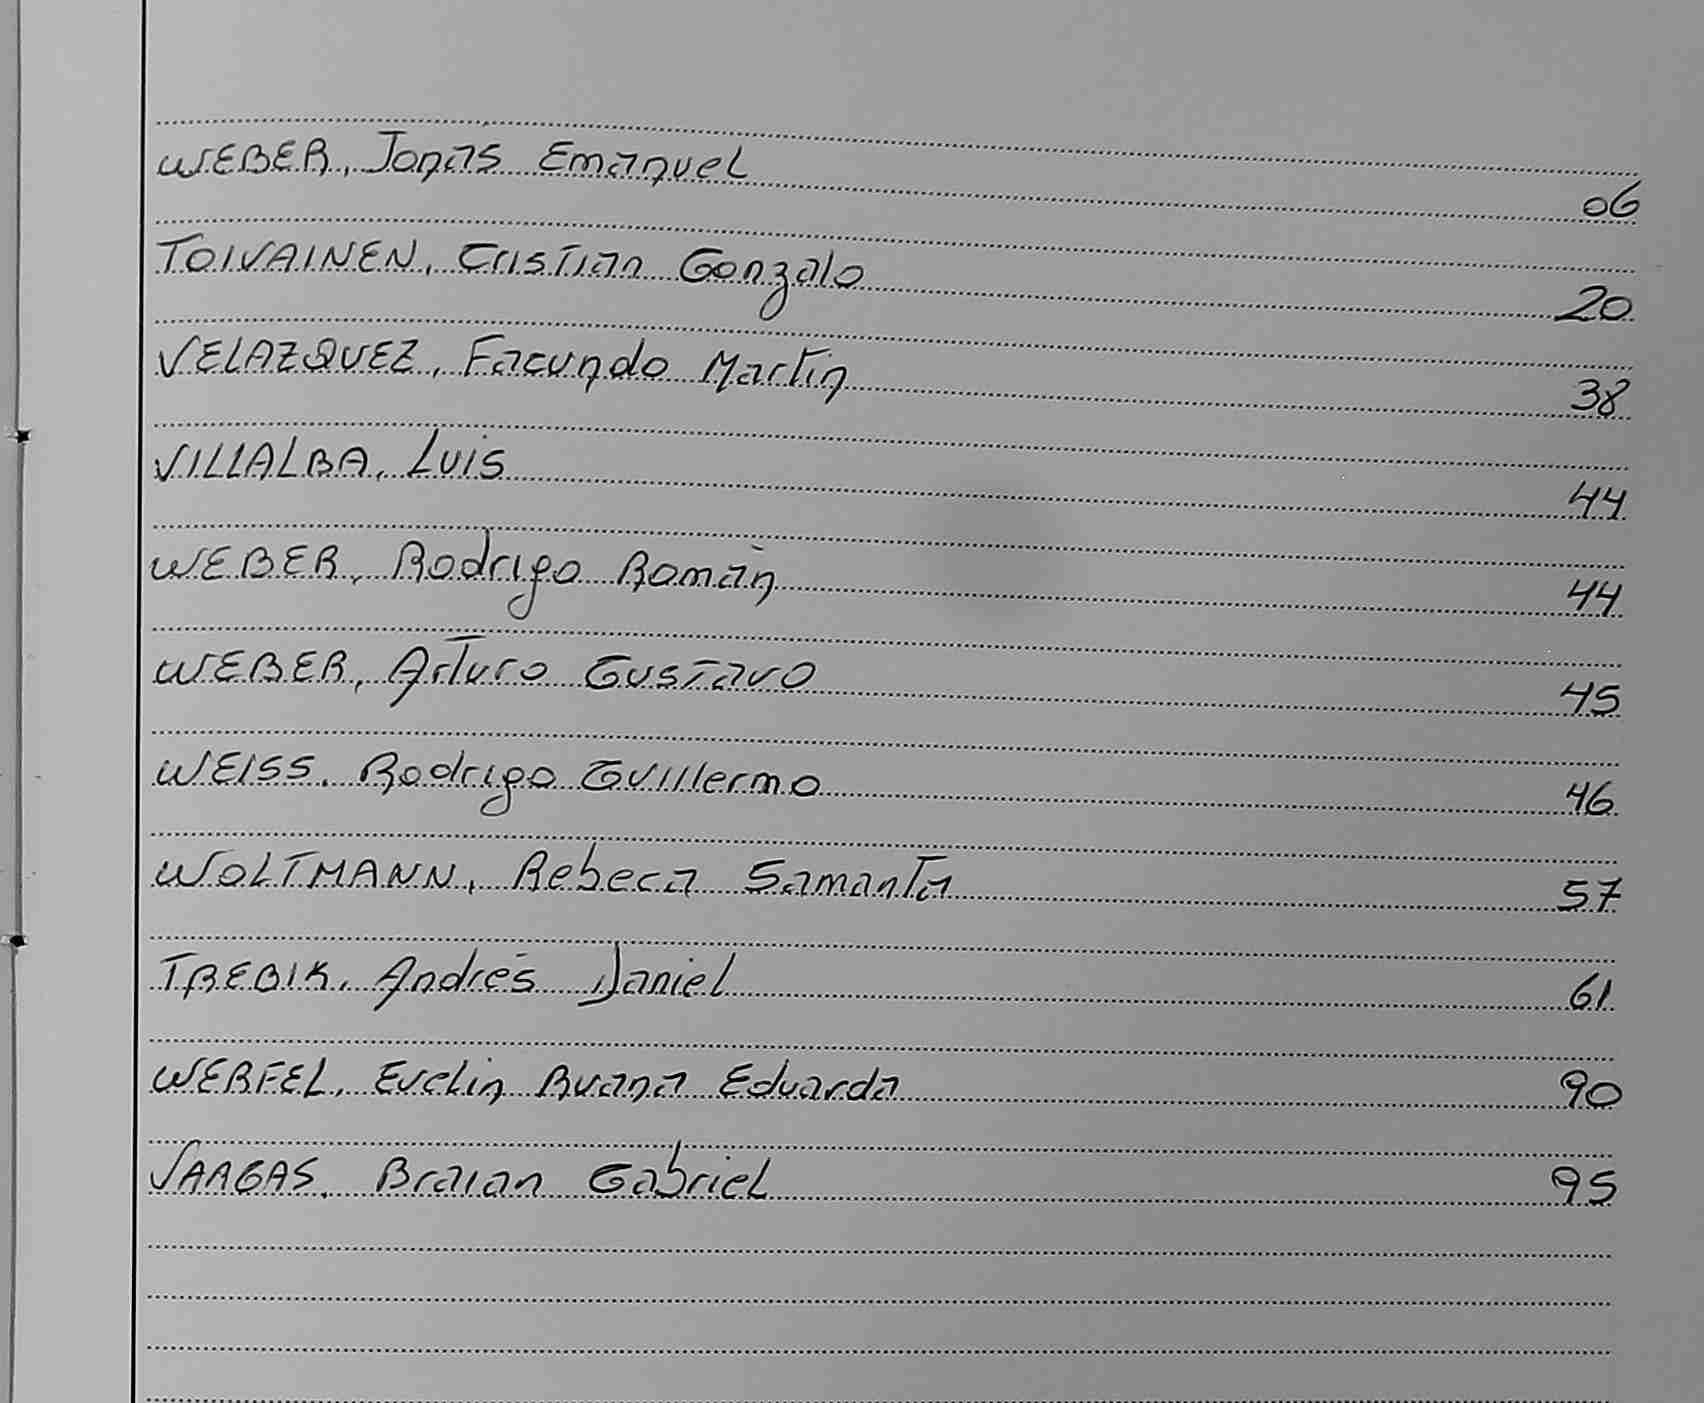 WEBER, Jonás Emanuel 06
TOIVAINEN, Cristian Gonzalo 20
VELAZQUEZ, Facundo Martin 38
VILLALBA, Luis 44
WEBER, Rodrigo Román 44
WEBER, Arturo Gustavo 45
WEISS, Rodrigo Guillermo 46
WOLTMANN, Rebeca Samanta 57
TREBIK, Andrés Daniel 61
WERFEL, Evelin Ruana Eduarda 90
VARGAS, Braian Gabriel 95